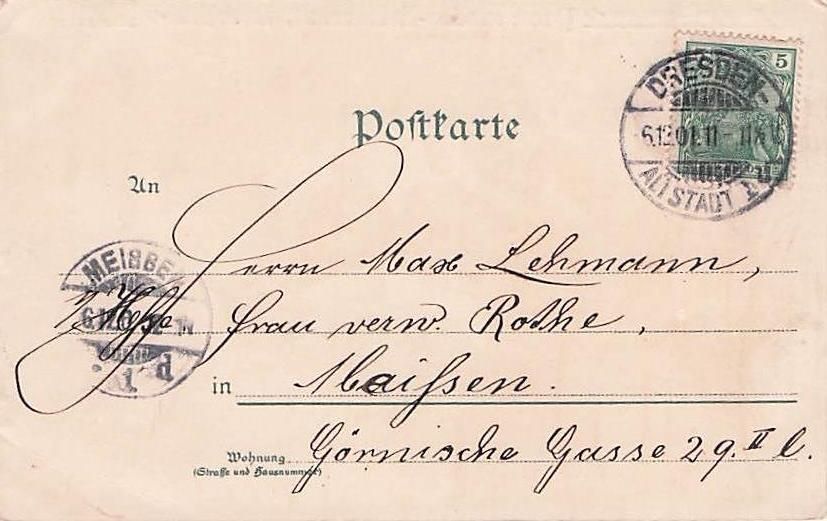 5
DRESDEN-
6.12.01.11-
ALTSTADT
Postkarte
An
Herrn Max Lehmann,
Frau verw. Rothe,
in Meissen.
Wohnung Görnische Gasse 29. II l.
(Straße und Hausnummer)
MEISSE
1